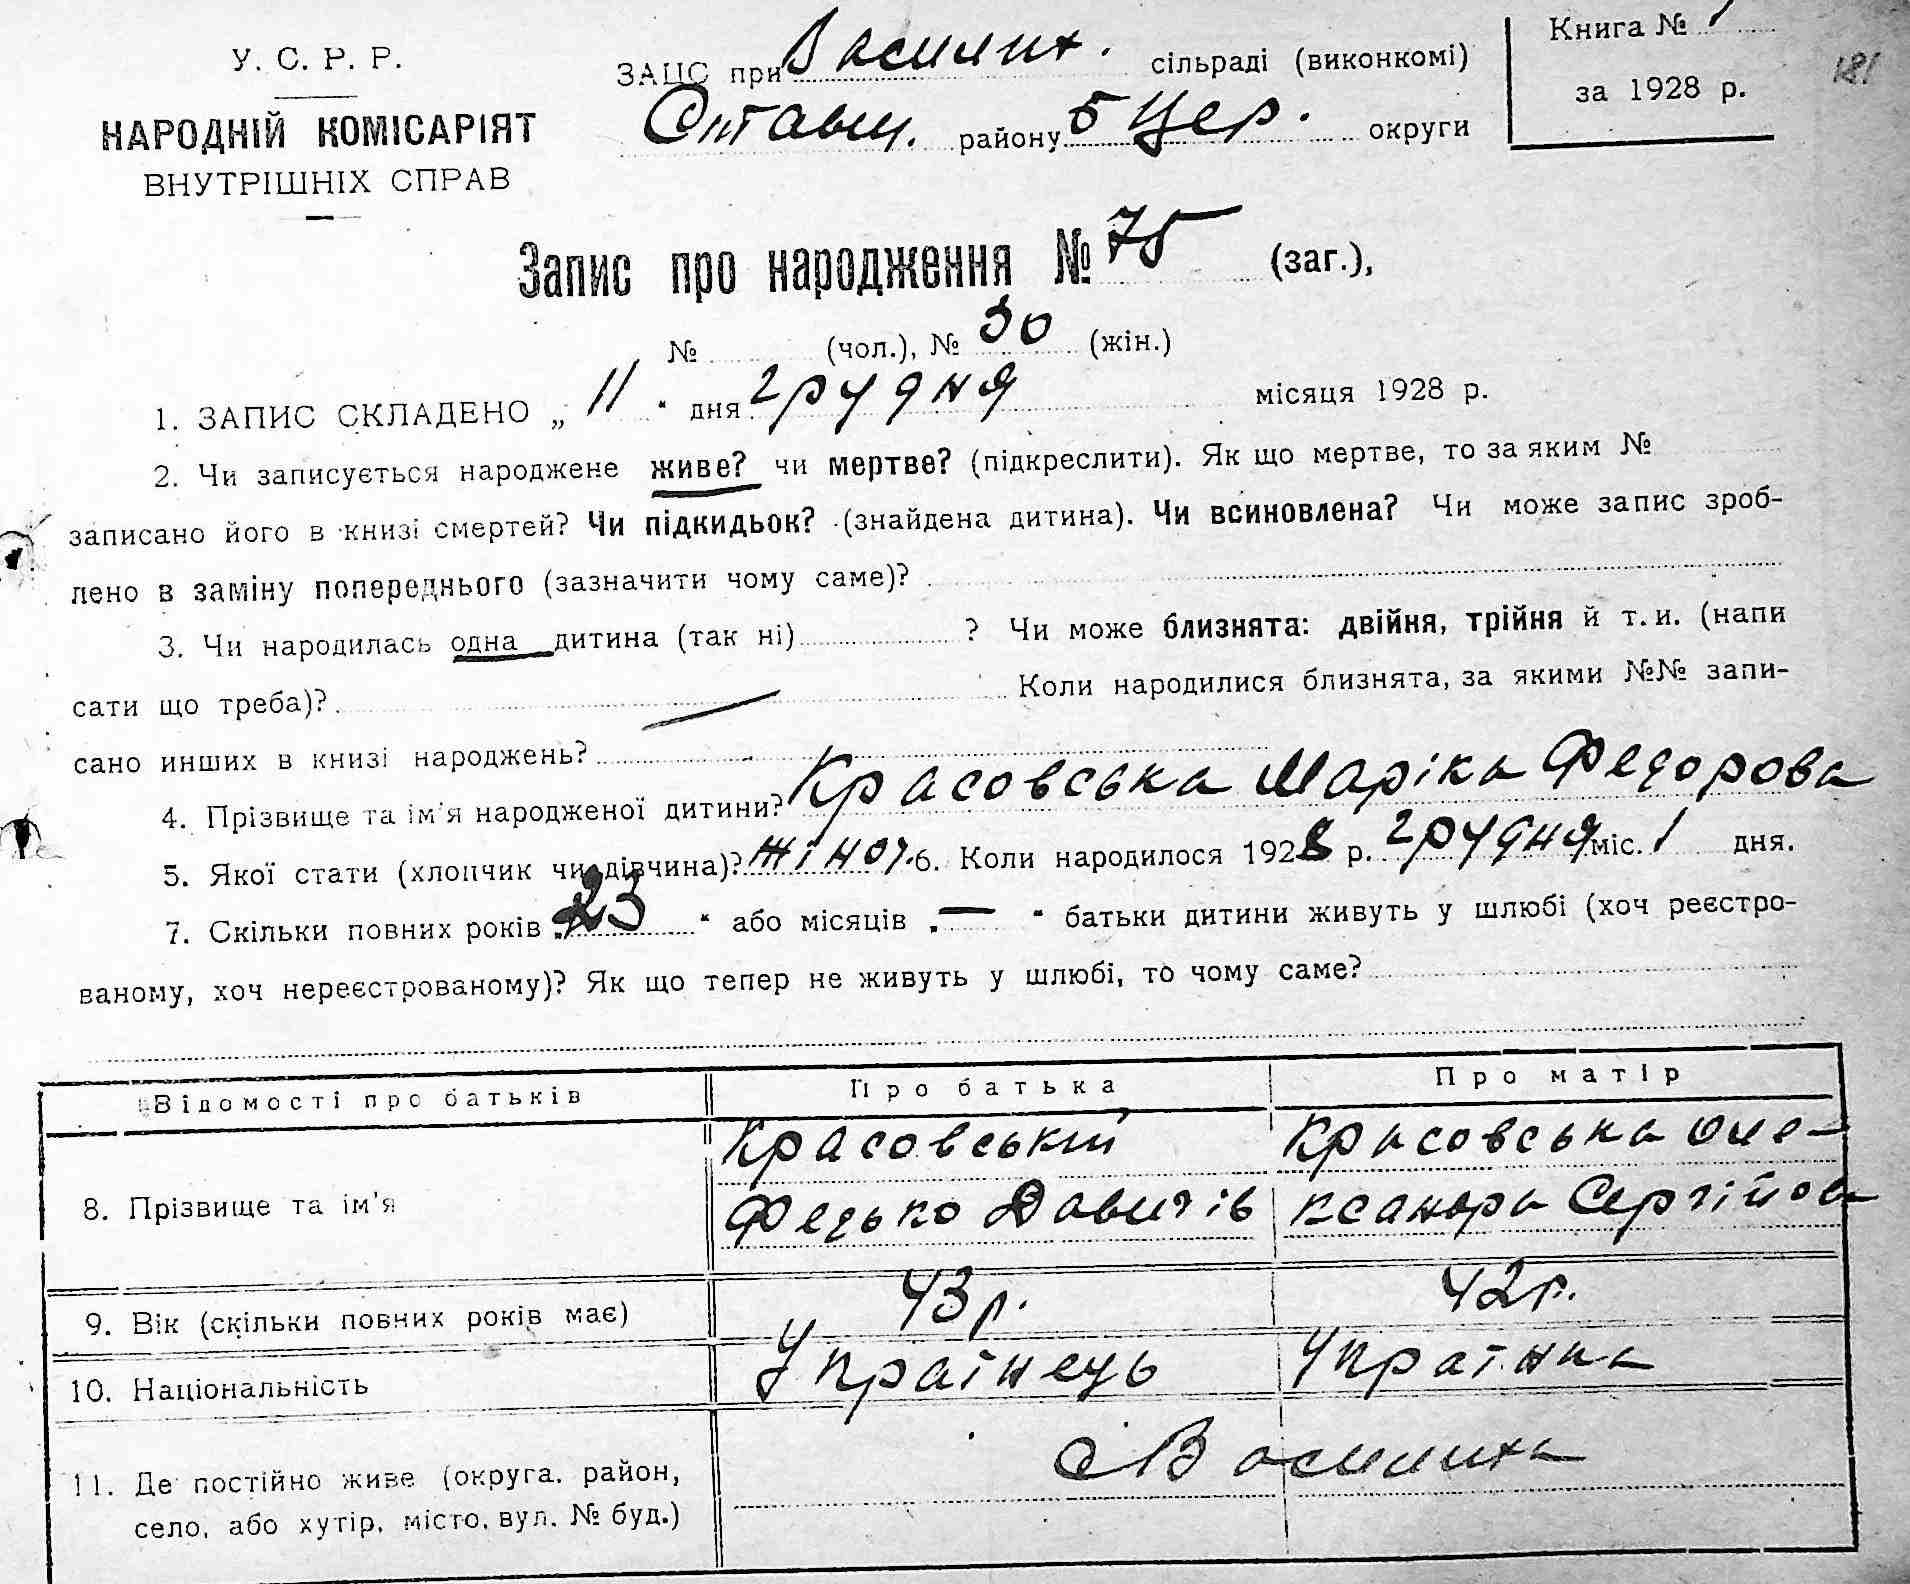 У. С. Р. Р.
НАРОДНІЙ КОМІСАРІЯТ
ВНУТРІШНІХ СПРАВ
ЗАЦС при Василих. сільраді (виконкомі)
району Б Цер. округи
Книга № 1
за 1928 р.
181
Запис про народження № 75 (заг.),
№ (чол.), № 30 (жін.)
1. ЗАПИС СКЛАДЕНО „ 11 “ дня грудня місяця 1928 р.
2. Чи записується народжене живе? чи мертве? (підкреслити). Як що мертве, то за яким №
записано його в книзі смертей? Чи підкидьок? (знайдена дитина). Чи всиновлена? Чи може запис зроб-
лено в заміну попереднього (зазначити чому саме)?
3. Чи народилась одна дитина (так ні) ? Чи може близнята: двійня, трійня й т. и. (напи
сати що треба)? Коли народилися близнята, за якими №№ запи-
сано инших в книзі народжень?
4. Прізвище та ім'я народженої дитини? Красовська Маріка Федорова
5. Якої стати (хлопчик чи дівчина)? жіноч. 6. Коли народилося 1928 р. грудня міс. 1 дня.
7. Скільки повних років „ 23 “ або місяців „ — “ батьки дитини живуть у шлюбі (хоч реєстро-
ваному, хоч нереєстрованому)? Як що тепер не живуть у шлюбі, то чому саме?
Відомості про батьків Про батька Про матір
8. Прізвище та ім'я Красовський Федько Давидів Красовська Оле-
ксандра Сергійова
9. Вік (скільки повних років має) 43 р. 42 р.
10. Національність Українець Українка
11. Де постійно живе (округа, район, с Василиха
село, або хутір, місто, вул. № буд.)